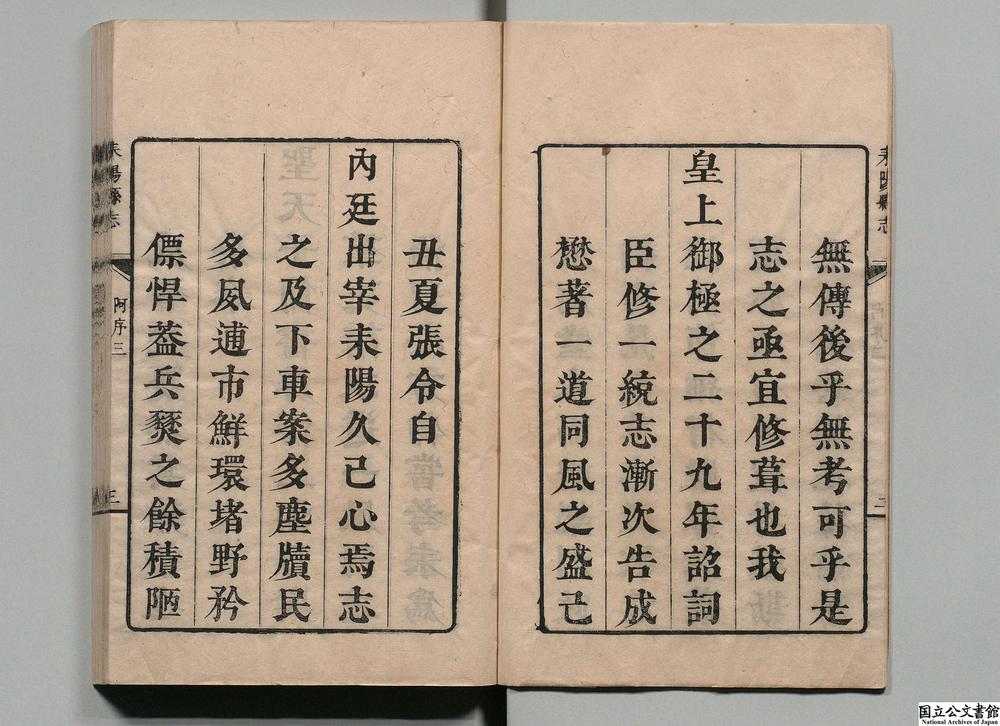 耒陽縣志
無傳後乎無考可乎是
志之亟宜修葺也我
皇上御極之二十九年詔詞
臣修一統志漸次告成
懋著一道同風之盛己
丑夏張令自
內廷出宰耒陽久已心焉志
之及下車案多塵牘民
多夙逋市鮮環堵野矜
僄悍蓋兵燹之餘積陋
耒陽縣志
阿序三
三
国立公文書館
National Archives of Japan